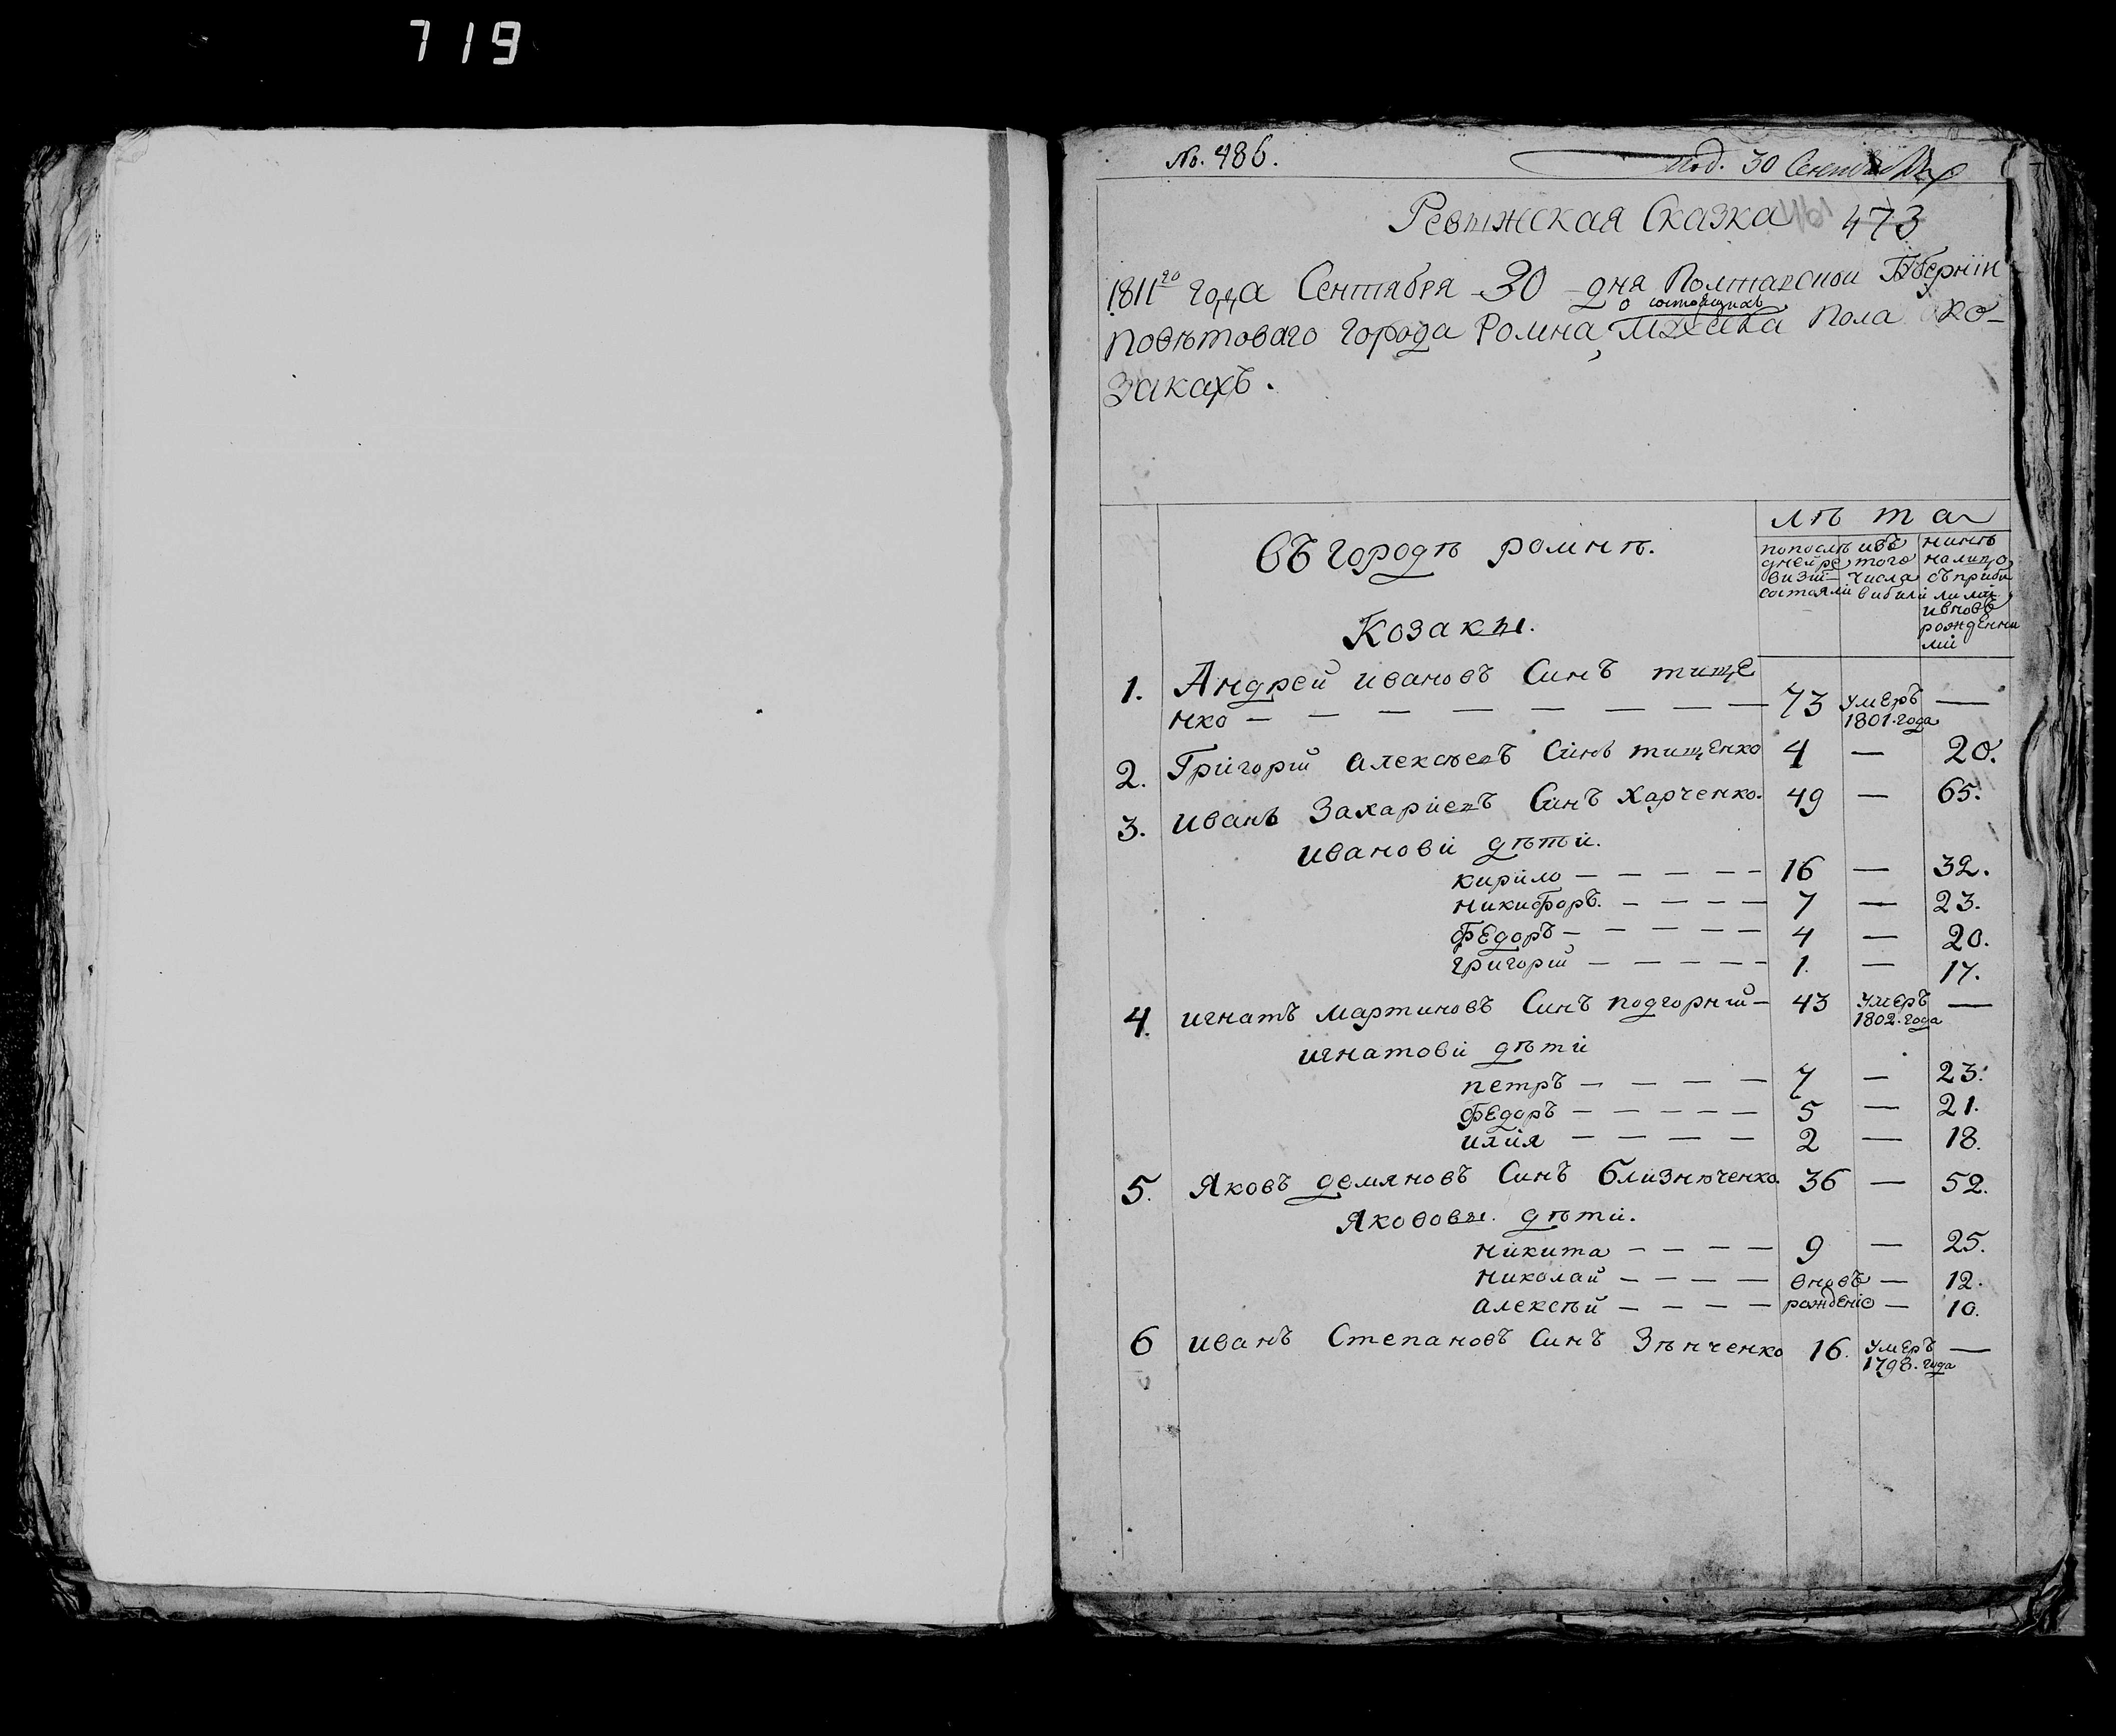 719
No. 486.
под. 30 Сентября
Ревижская Сказка 473
1811го года Сентября 30 дня Полтавской Губернии
о состоящихъ
повѣтоваго города Ромна, мужеска пола ко-
закахъ.
Въ городѣ ромнѣ.
Козаки.
лѣта
по послѣдней ревизии состояли
изъ того числа выбили
нынѣ налицо съ прибилими и вновъ рожденними
1. Андрей ивановъ Синъ тище
нко — — — — — — — — 73 умеръ —
1801. года
2. Григорій алексѣевъ Синъ тищенко 4 — 20.
3. иванъ Захаріевъ Синъ Харченко. 49 — 65.
иванови дѣти.
кирило — — — — — 16 — 32.
никифоръ. — — — — 7 — 23.
федоръ — — — — — 4 — 20.
григорій — — — — — 1. — 17.
4. игнатъ мартиновъ Синъ подгорний — 43 умеръ —
1802. года
игнатови дѣти
петръ — — — — — 7 — 23.
федоръ — — — — — 5 — 21.
илія — — — — — 2 — 18.
5. Яковъ демяновъ Синъ близнюченко. 36 — 52.
Яковови. дѣти.
никита — — — — 9 — 25.
николай — — — — вновъ — 12.
алексѣй — — — — рожденіе — 10.
6 иванъ Степановъ Синъ Зѣнченко 16. умеръ —
1798. года